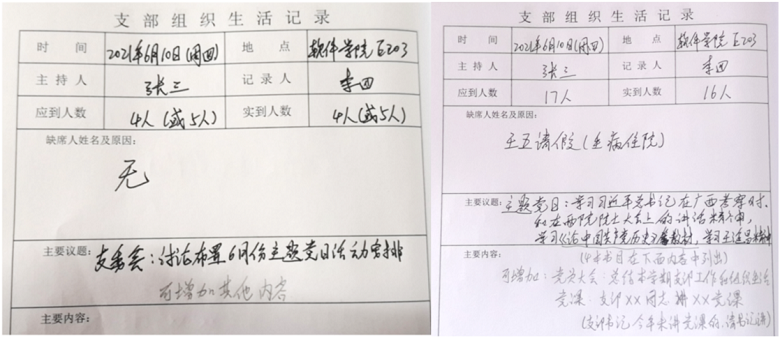 支部组织生活记录
时 间 2021年6月10日(周四) 地 点 软件学院E203
主持人 张三 记录人 李四
应到人数 4人(或5人) 实到人数 4人(或5人)
缺席人姓名及原因:
无
主要议题: 支委会:讨论布置6月份主题党日活动安排
可增加其他内容
主要内容:
支部组织生活记录
时 间 2021年6月10日(周四) 地 点 软件学院E203
主持人 张三 记录人 李四
应到人数 17人 实到人数 16人
缺席人姓名及原因:
王五请假(生病住院)
主要议题: 主题党日:学习习近平总书记在广西考察时、
和在两院院士大会上的讲话精神,
学习《中国共产党历史》
主要内容: (4本书目在下面内容中列出)
可增加:党员大会:总结本学期支部工作和组织生活
党课:支部XX同志讲XX党课
(支部书记今年未讲党课的,请